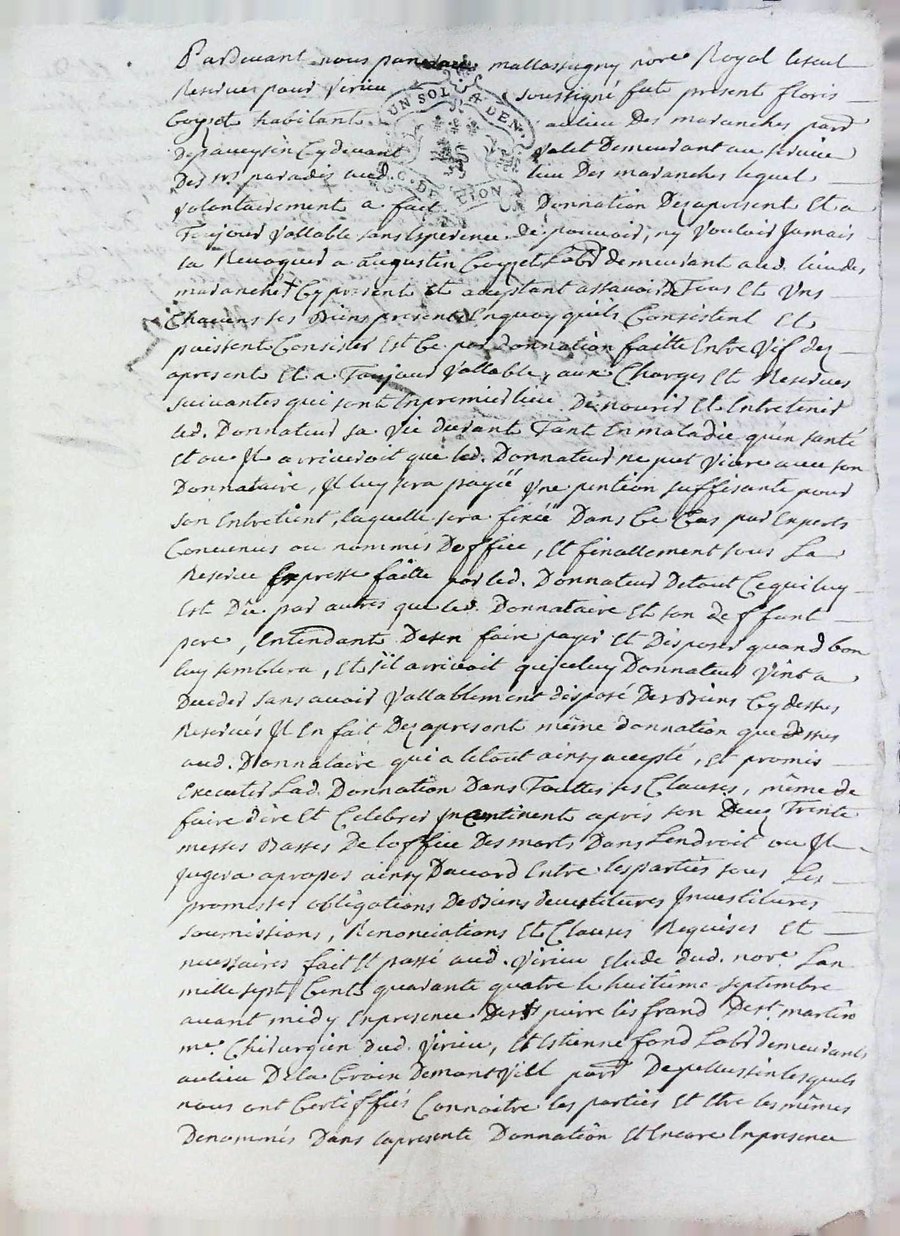 Pardevant nous mallassagny nore Royal leseul
Reservé pour Virieu UN SOL 4 DEN. soussigné fut present floris
Goyet habitant aulieu Des maranches parr
Depaveysin Cydevant valet Demeurant au service
Des srs parades aud. G. DE LION lieu Des maranches lequel
volontairement a fait Donnation Dezapresent Et a
Toujour vallable sans Esperence de pouvoir, ny vouloir Jamais
la Revoquer a augustin Goyet Labr demeurant aud. lieu des
maranches Cy present Et acceptant assavoir De Tous Et Uns
Chacuns ses Biens presents Enquoy qu'ils Consistent Et
puissent Consister Est Ce par Donnation faitte Entre Vif dez
apresent Et a Toujour vallable, aux Charges Et Reserves
suivantes qui sont Enpremier lieu De nourir Et Entretenir
led. Donnateur sa vie durant Tant En maladie qu'en santé
Et ou Il arriveroit que led. Donnateur ne put vivre avec son
Donnataire, Il luy sera payé Une pention suffisante pour
son Entretient, laquelle sera fixée Dans Ce Cas par Experts
Convenus ou nommés D'office, Et finallement sous La
Reserve Expresse faitte par led. Donnateur Detout Cequi luy
Est Dûe par autres que led. Donnataire Et son Deffunt
pere, Entendant Desen faire payer Et Disposer quand bon
luy semblera, Et s'il arrivoit qu'iceluy Donnateur vint a
Deceder sans avoir vallablement disposé Des Biens Cydessus
Reservés Il En fait Dez apresent même donnation que dessus
aud. Donnataire qui a letout ainsy accepté, Et promis
Executer Lad. Donnation Dans Touttes ses Clauses, même de
faire dire Et Celebrer Incontinent apres son Decez Trente
messes Basses De l'office Des morts Dans Lendroit ou Il
jugera apropos ainsy Daccord Entre les parties sous Les
promesses obligations De Biens devestitures Investitures
soumissions, Renonciations Et Clauses Requises Et
necessaires fait Et passé aud. Virieu Etude dud. nore Lan
mille sept Cents quarante quatre le huitieme septembre
avant midy Enpresence De sr pierre lisfrand De st. martin
me. Chirurgien dud. Virieu, Et Estienne fond Labr demeurants
aulieu De la Croix De montvill parr De pellussin lesquels
nous ont Certiffiés Connoitre les parties Et Etre les mêmes
Denommés Dans lapresente Donnation Et Encore Enpresence